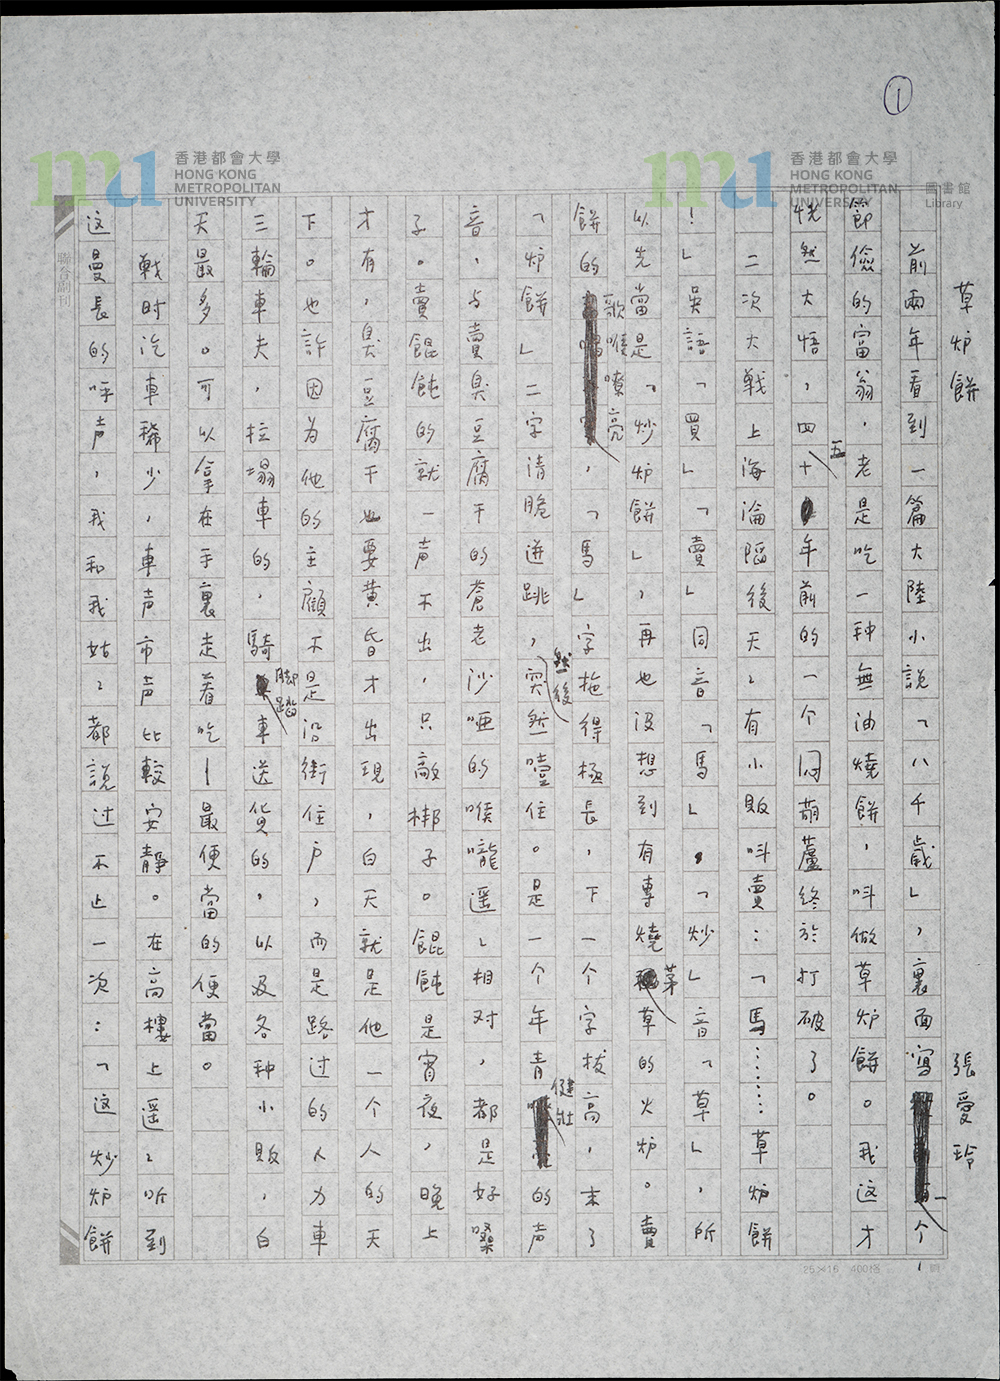 ①
香港都會大學
HONG KONG
METROPOLITAN
UNIVERSITY
香港都會大學
HONG KONG
METROPOLITAN
UNIVERSITY
圖書館
Library
草炉餅 張愛玲
前兩年看到一篇大陸小說「八千歲」，裏面寫一个
節儉的富翁，老是吃一种無油燒餅，叫做草炉餅。我這才
恍然大悟，四五十年前的一个悶葫蘆終於打破了。
二次大戰上海淪陷後天天有小販叫賣：「馬……草炉餅
！」吳語「買」「賣」同音「馬」，「炒」音「草」，所
以先當是「炒炉餅」，再也沒想到有專燒茅草的火炉。賣
餅的歌喉嘹亮，「馬」字拖得極長，下一个字拔高，末了
「炉餅」二字清脆迸跳，然後突然噎住。是一个年青健壯的声
音，与賣臭豆腐干的蒼老沙啞的喉嚨遥遥相对，都是好嗓
子。賣餛飩的就一声不出，只敲梆子。餛飩是宵夜，晚上
才有，臭豆腐干也要黄昏才出現，白天就是他一个人的天
下。也許因为他的主顧不是沿街住户，而是路过的人力車
三輪車夫，拉塌車的，騎脚踏車送貨的，以及各种小販，白
天最多。可以拿在手裏走着吃—最便當的便當。
戰时汽車稀少，車声市声比較安靜。在高樓上遥遥听到
这曼長的呼声，我和我姑姑都說过不止一次：「这炒炉餅
聯合副刊
25×16 400格